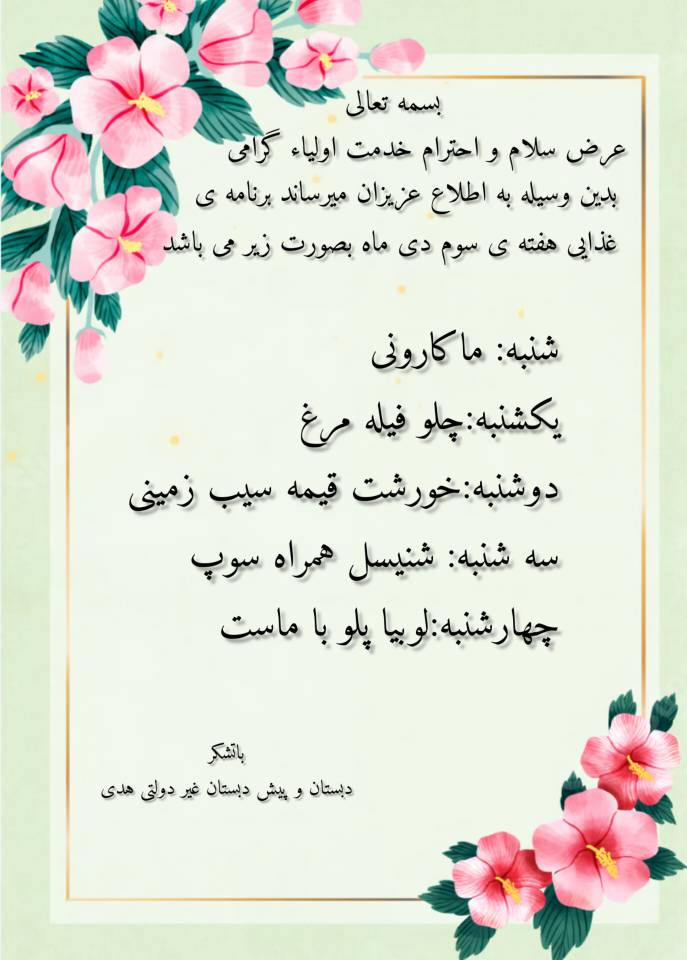 بسمه تعالی
عرض سلام و احترام خدمت اولیاء گرامی
بدین وسیله به اطلاع عزیزان میرساند برنامه ی
غذایی هفته ی سوم دی ماه بصورت زیر می باشد
شنبه: ماکارونی
یکشنبه:چلو فیله مرغ
دوشنبه:خورشت قیمه سیب زمینی
سه شنبه: شنیسل همراه سوپ
چهارشنبه:لوبیا پلو با ماست
باتشکر
دبستان و پیش دبستان غیر دولتی هدی